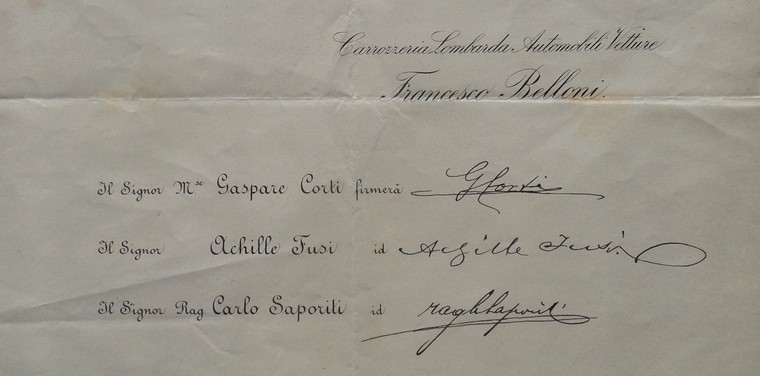 Carrozzeria Lombarda Automobili Vetture
Francesco Belloni.
Il Signor Mse Gaspare Corti firmerà GCorti
Il Signor Achille Fusi id Achille Fusi
Il Signor Rag. Carlo Saporiti id